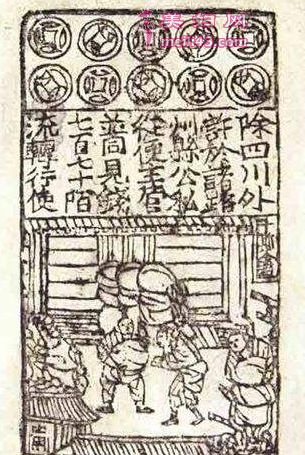 美淘网
除四川外
許於諸路
州縣公私
從便主管
並同見錢
七百七十陌
流轉行使